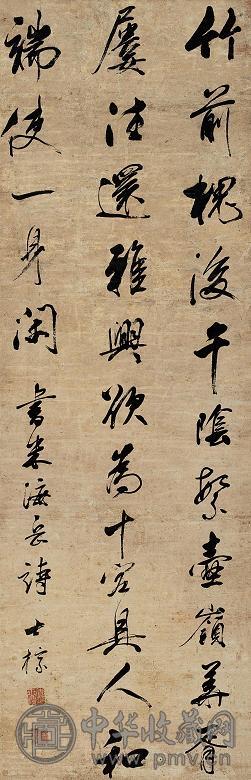 竹前槐後午陰繁壺嶺華胥
屢往還雅興欲為十客具人和
端使一身閑
書米海岳詩 士標
中华收藏网
www.pmv.cn